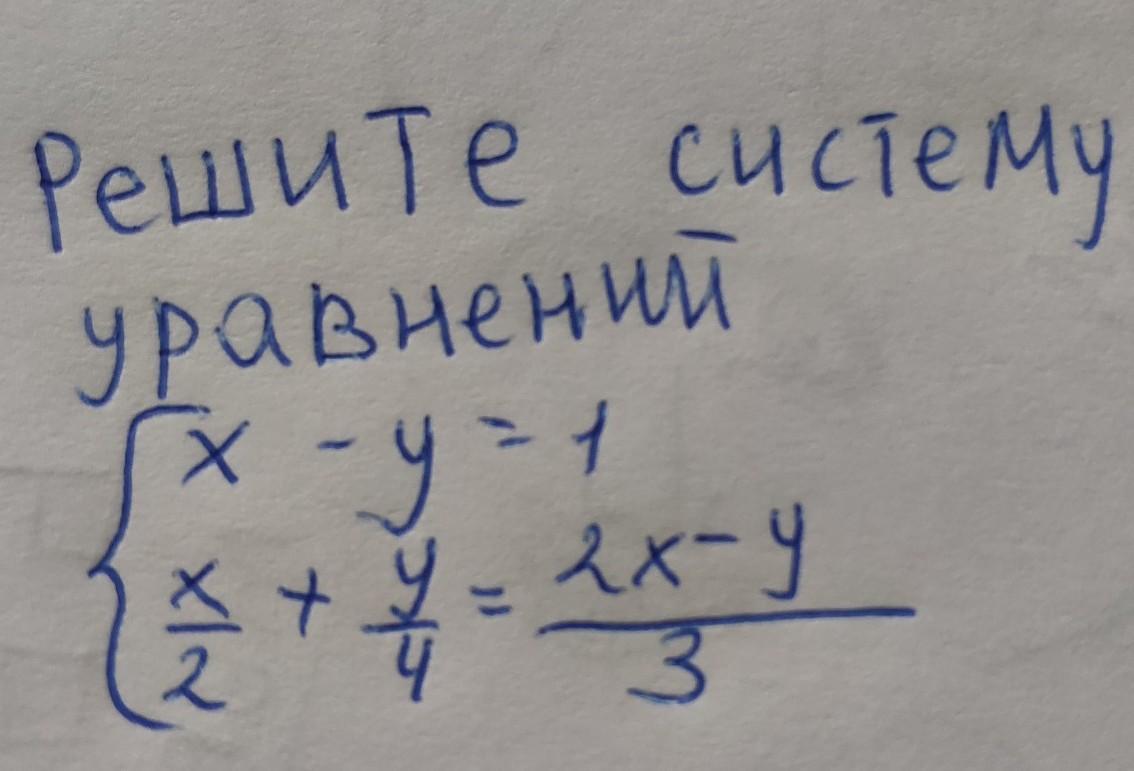 Решите систему
уравнений
{ x - y = 1
x/2 + y/4 = (2x - y)/3